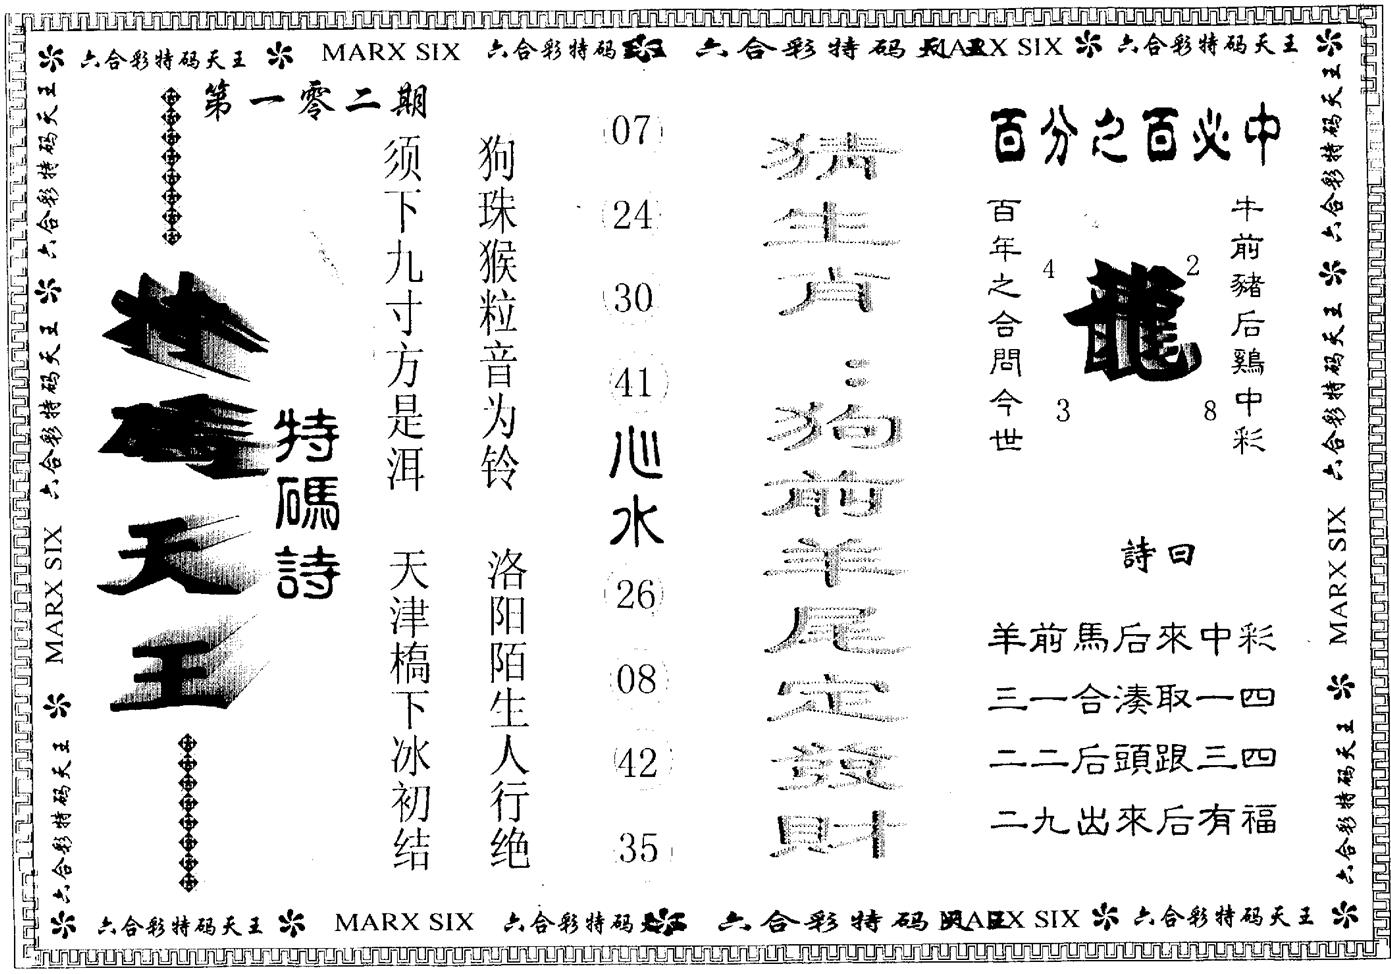 六合彩特码天王 MARX SIX 六合彩特码天王 六合彩特码天王 MARX SIX 六合彩特码天王
第一零二期
特碼天王
特碼詩
须下九寸方是洱
天津槗下冰初结
狗珠猴粒音为铃
洛阳陌生人行绝
07
24
30
41
心水
26
08
42
35
猜生肖:
狗前羊尾定發財
百分之百必中
百年之合問今世
4
2
龍
3
8
牛前豬后鷄中彩
詩曰
羊前馬后來中彩
三一合湊取一四
二二后頭跟三四
二九出來后有福
六合彩特码天王 六合彩特码天王 MARX SIX 六合彩特码天王
六合彩特码天王 六合彩特码天王 MARX SIX 六合彩特码天王
六合彩特码天王 MARX SIX 六合彩特码天王 六合彩特码天王 MARX SIX 六合彩特码天王